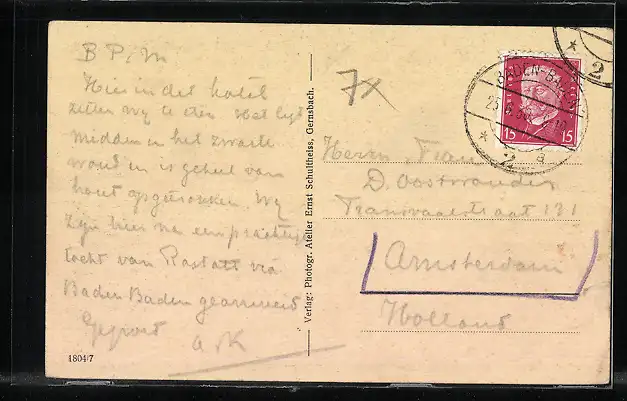 B P. M
Hier in dit hotel
zitten wy te eten. Het ligt
midden in het zwarte
woud en is geheel van
hout opgetrokken. Wy
zyn hier na een prachtige
tocht van Rastatt via
Baden Baden gearriveerd
Gegroet
a. K
1804/7
Verlag: Photogr. Atelier Ernst Schultheiss, Gernsbach.
7x
BADEN-BADEN
2
a
15 15
2
Herrn
D. Oostwouder
Transvaalstraat 121
Amsterdam
Holland